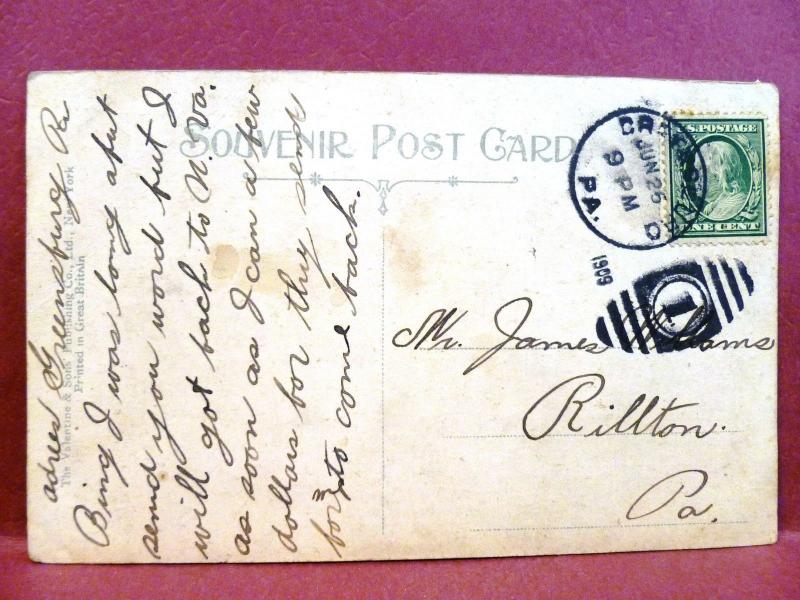 SOUVENIR POST CARD
The Valentine & Sons Publishing Co., Ltd., New York
Printed in Great Britain
adrees Greensburg Pa
Being I was long about
send you word but I
will got back to W. Va.
as soon as I can a few
dollars bor they send
bor to come back.
JUN 25
9 PM
PA.
1909
1
U.S. POSTAGE
ONE CENT
Mr. James Williams
Rillton.
Pa.